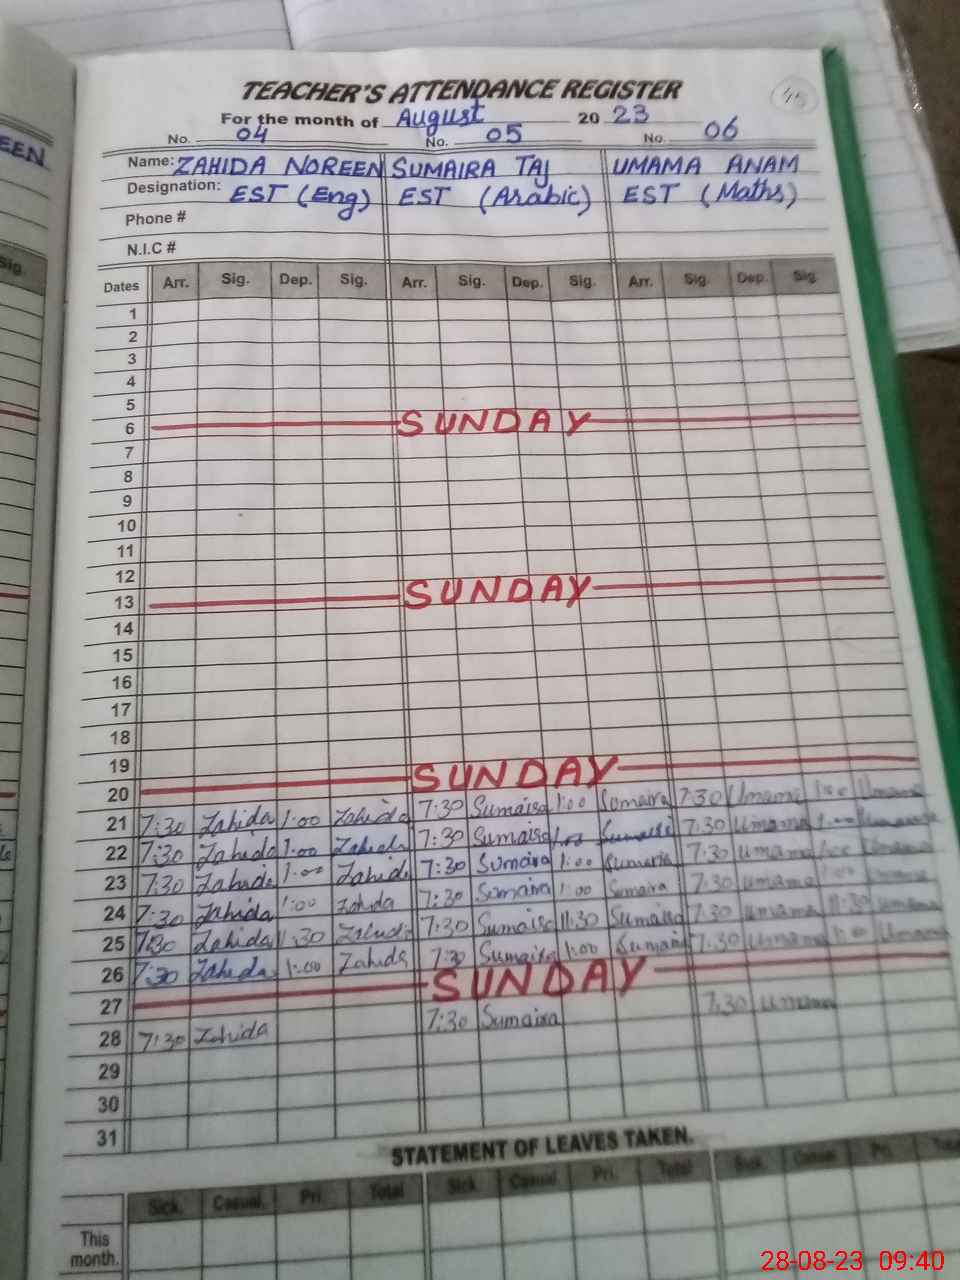 EEN
Sig.
TEACHER'S ATTENDANCE REGISTER
45
For the month of August 20 23
No. 04 No. 05 No. 06
Name: ZAHIDA NOREEN SUMAIRA TAJ UMAMA ANAM
Designation: EST (Eng) EST (Arabic) EST (Maths)
Phone #
N.I.C #
Dates Arr. Sig. Dep. Sig. Arr. Sig. Dep. Sig. Arr. Sig. Dep. Sig
1
2
3
4
5
6 SUNDAY
7
8
9
10
11
12
13 SUNDAY
14
15
16
17
18
19
20 SUNDAY
21 7:30 Zahida 1:00 Zahida 7:30 Sumaira 1:00 Sumaira 7:30 Umama 1:00 Umama
22 7:30 Zahida 1:00 Zahida 7:30 Sumaira 1:00 Sumaira 7:30 Umama 1:00 Umama
23 7:30 Zahida 1:00 Zahida 7:30 Sumaira 1:00 Sumaira 7:30 Umama 1:00 Umama
24 7:30 Zahida 1:00 Zahida 7:30 Sumaira 1:00 Sumaira 7:30 Umama 1:00 Umama
25 7:30 Zahida 11:30 Zahida 7:30 Sumaira 11:30 Sumaira 7:30 Umama 11:30 Umama
26 7:30 Zahida 1:00 Zahida 7:30 Sumaira 1:00 Sumaira 7:30 Umama 1:00 Umama
27 SUNDAY
28 7:30 Zahida 7:30 Sumaira 7:30 Umama
29
30
31
STATEMENT OF LEAVES TAKEN.
Sick. Casual. Pri. Total Sick. Casual. Pri. Total Sick. Casual. Pri. Total
This
month.
28-08-23 09:40